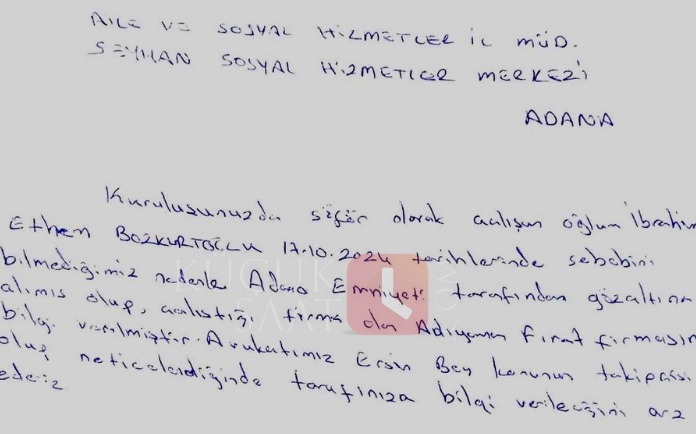 AİLE VE SOSYAL HİZMETLER İL MÜD.
SEYHAN SOSYAL HİZMETLER MERKEZİ
ADANA
Kuruluşunuzda şöför olarak çalışan oğlum İbrahim
Ethem BOZKURTOĞLU 17.10.2024 tarihlerinde sebebini
bilmediğimiz nedenle Adana Emniyeti tarafından gözaltına
alımıs olup, çalıştığı firma olan Adıyaman Fırat firmasın
bilgi verilmiştir. Avukatımız Ersin Bey konunun takipçisi
olup neticelendiğinde tarafınıza bilgi verileceğini arz
ederiz
KÜÇÜK
SAAT
.COM